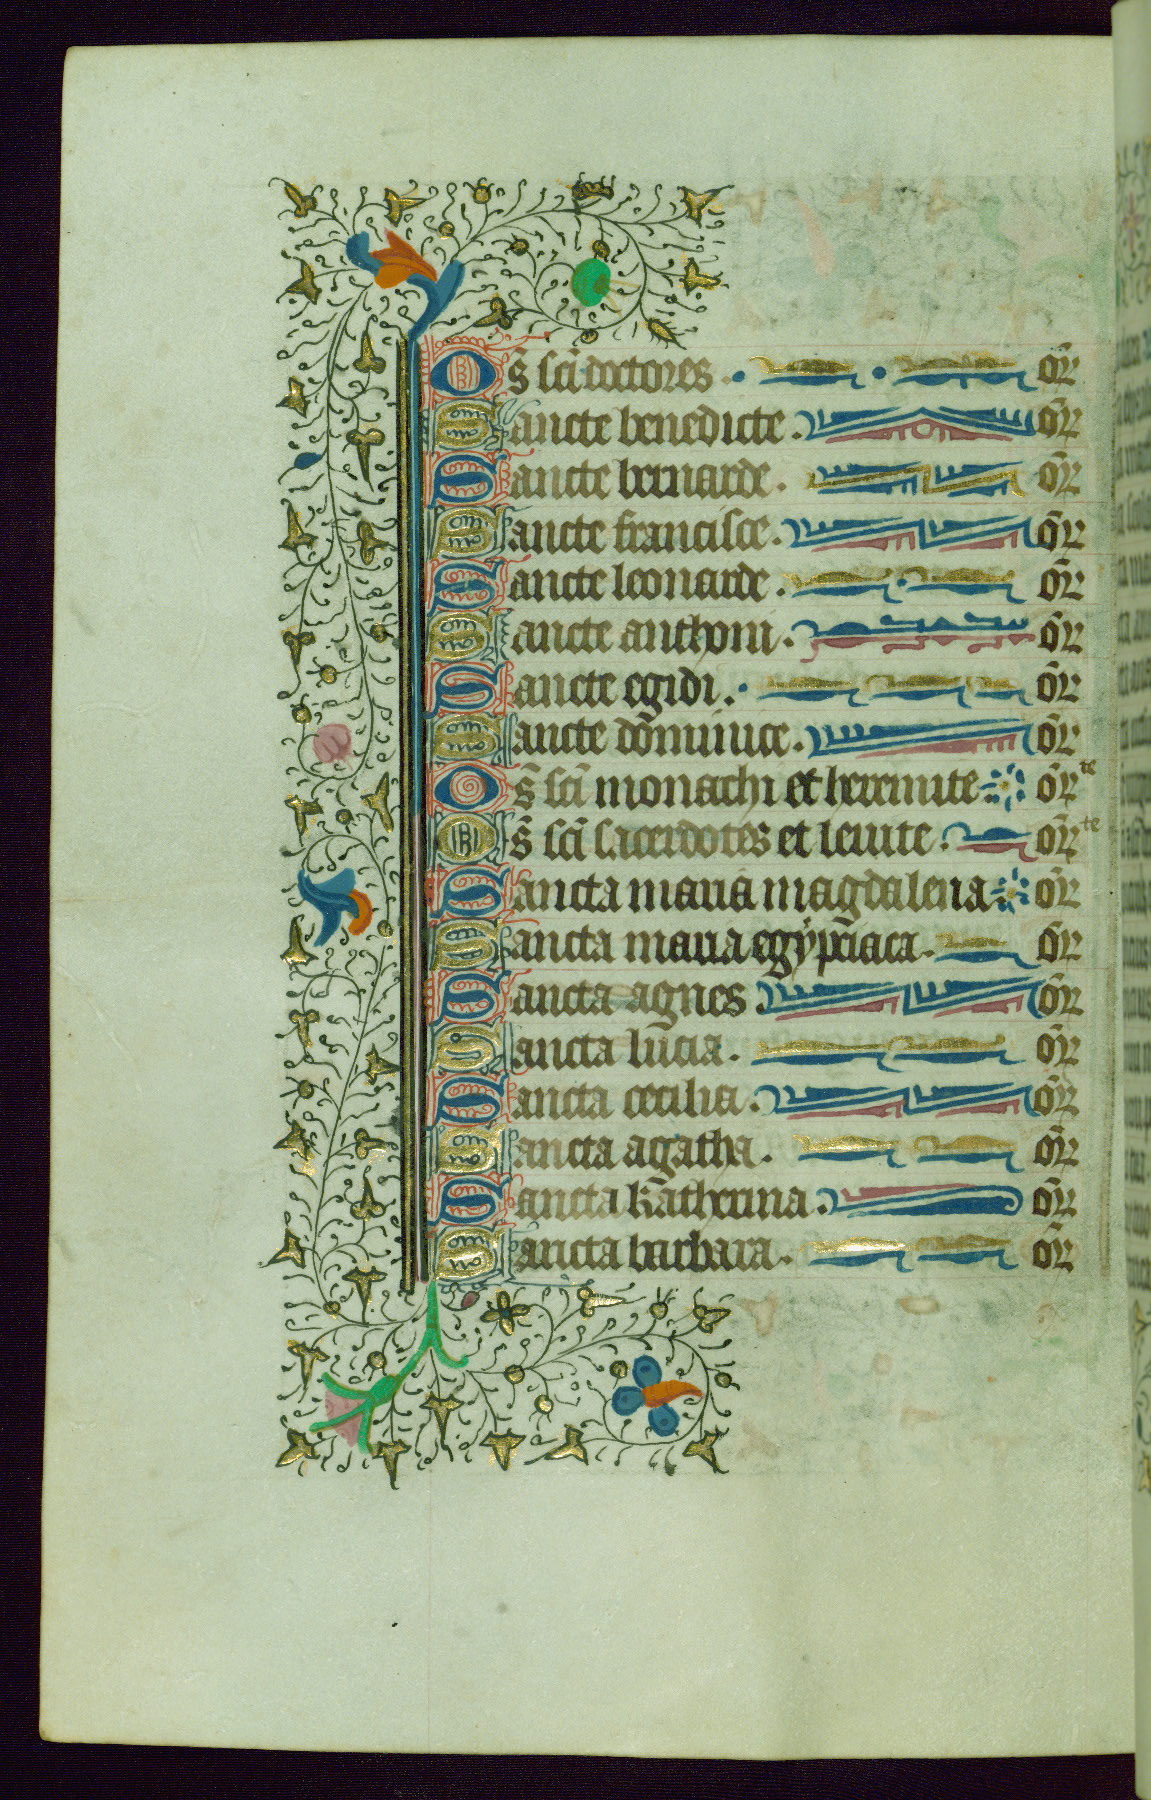 Os̄ sc̄i doctores. or̄
Sancte benedicte. or̄
Sancte bernarde. or̄
Sancte francisce. or̄
Sancte leonarde. or̄
Sancte anthoni. or̄
Sancte egidi. or̄
Sancte dōminice. or̄
Os̄ sc̄i monachi et heremite or̄te
Os̄ sc̄i sacerdotes et leuite. or̄te
Sancta maria magdalena or̄
Sancta maria egypc̄iaca. or̄
Sancta agnes or̄
Sancta lucia. or̄
Sancta cecilia. or̄
Sancta agatha. or̄
Sancta katherina. or̄
Sancta barbara. or̄